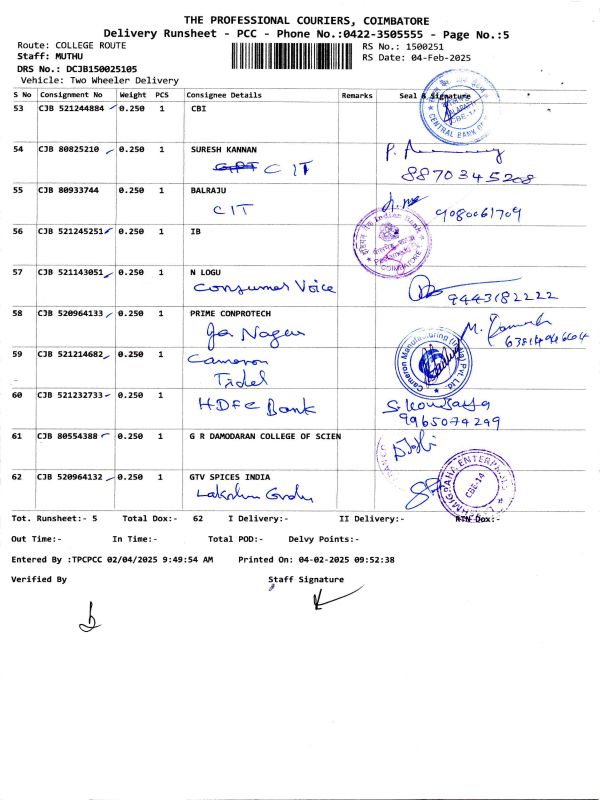 THE PROFESSIONAL COURIERS, COIMBATORE
Delivery Runsheet - PCC - Phone No.:0422-3505555 - Page No.:5
Route: COLLEGE ROUTE RS No.: 1500251
Staff: MUTHU RS Date: 04-Feb-2025
DRS No.: DCJB150025105
Vehicle: Two Wheeler Delivery
S No Consignment No Weight PCS Consignee Details Remarks Seal & Signature
53 CJB 521244884 0.250 1 CBI
CENTRAL BANK OF
54 CJB 80825210 0.250 1 SURESH KANNAN
CIT 8870345208
55 CJB 80933744 0.250 1 BALRAJU
CIT 9080061709
56 CJB 521245251 0.250 1 IB
Indian Bank
COIMBATORE
57 CJB 521143051 0.250 1 N LOGU
Consumer Voice 9443182222
58 CJB 520964133 0.250 1 PRIME CONPROTECH
Nagar
59 CJB 521214682 0.250 1 Cameron
Tidel
Cameron Manufacturing (India) Pvt. Ltd.
60 CJB 521232733 0.250 1 HDFC Bank
9965074299
61 CJB 80554388 0.250 1 G R DAMODARAN COLLEGE OF SCIEN
62 CJB 520964132 0.250 1 GTV SPICES INDIA
ENTERPRISES
CBE-14
Tot. Runsheet:- 5 Total Dox:- 62 I Delivery:- II Delivery:- RTN Dox:-
Out Time:- In Time:- Total POD:- Delvy Points:-
Entered By :TPCPCC 02/04/2025 9:49:54 AM Printed On: 04-02-2025 09:52:38
Verified By Staff Signature